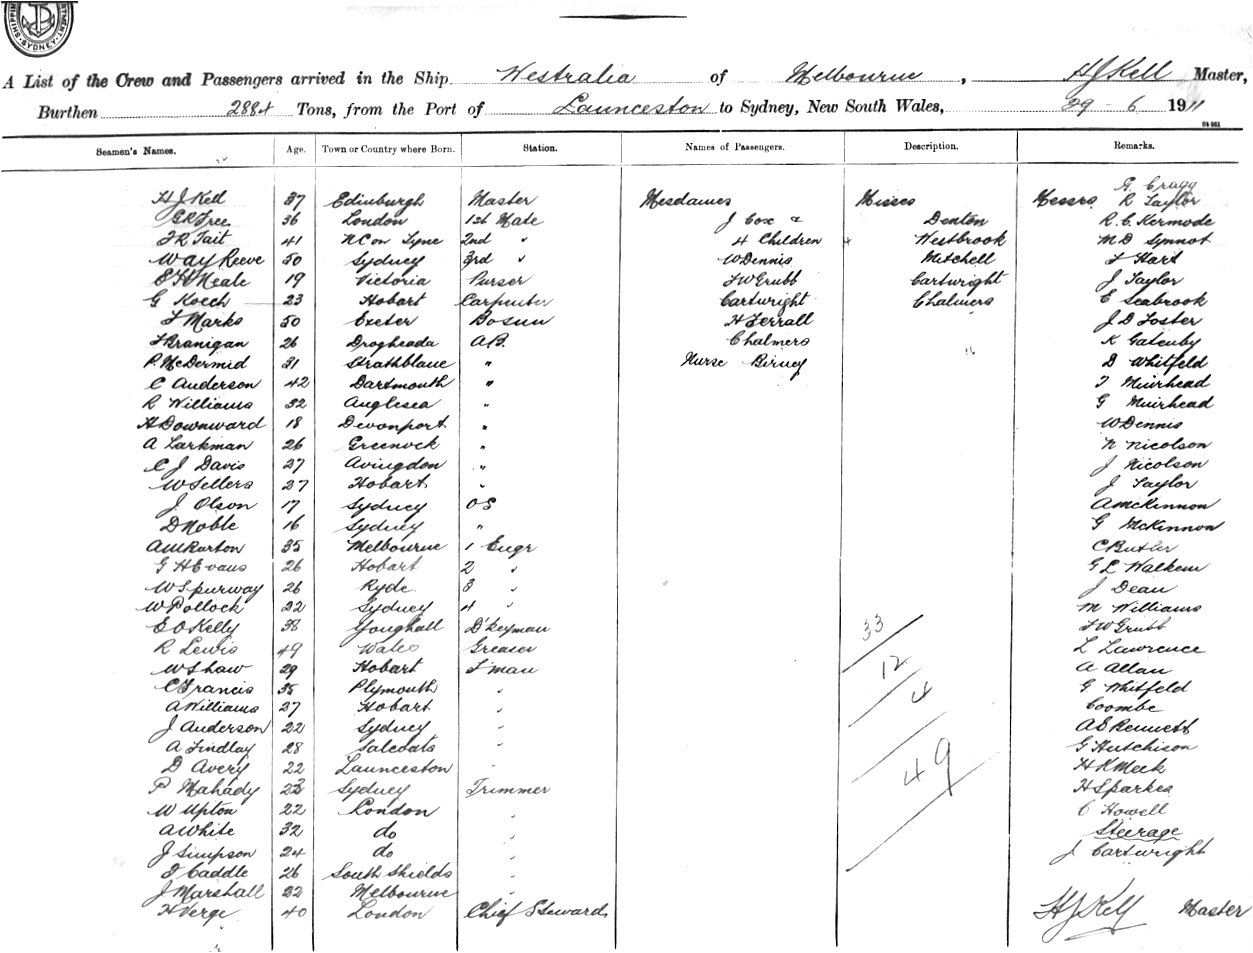 SHIPPING DEPARTMENT. SYDNEY.
A List of the Crew and Passengers arrived in the Ship Westralia of Melbourne, H J Kell Master,
Burthen 2884 Tons, from the Port of Launceston to Sydney, New South Wales, 29 - 6 1911
Seamen's Names. Age. Town or Country where Born. Station. Names of Passengers. Description. Remarks.
G. Cragg
H J Kell 37 Edinburgh Master Mesdames Misses Messrs R Taylor
G R Free 36 London 1st Mate J Cox & Denton R. C. Kermode
J R Tait 41 N C on Tyne 2nd " 4 Children Westbrook M D Synnot
W A Y Reeve 50 Sydney 3rd " W Dennis Mitchell F Hart
E H Neale 19 Victoria Purser F W Grubb Cartwright J Taylor
G Koech 23 Hobart Carpenter Cartwright Chalmers E Seabrook
F Marks 50 Exeter Bosun H Ferrall J D Foster
F Branigan 26 Drogheada A.B. Chalmers K Gatenby
P. McDermid 31 Strathblane " Nurse Birney D Whitfeld
C Anderson 42 Dartmouth " T Muirhead
R Williams 32 Anglesea " G Muirhead
H Downward 18 Devonport " W Dennis
A Larkman 26 Greenock " N Nicolson
C J Davis 27 Avingdon " J Nicolson
W Sellers 27 Hobart " J Taylor
J Olson 17 Sydney OS A McKinnon
D Noble 16 Sydney " G McKinnon
A W Barton 35 Melbourne 1 Engr C Butler
G H Evans 26 Hobart 2 " G L Walkem
W Spurway 26 Ryde 3 " J Dean
W Pollock 22 Sydney 4 " M Williams
E O Kelly 38 Youghall D'keyman 33 F W Grubb
R Lewis 49 Wales Greaser L Lawrence
W Shaw 29 Hobart F'man 12 A Allan
C Francis 35 Plymouth " 4 G Whitfeld
A Williams 27 Hobart " Coombe
J Anderson 22 Sydney " A E Bennett
A Findlay 28 Salcoats " 49 G Hutchison
D Avery 22 Launceston " H K Meek
P Mahady 22 Sydney Trimmer H Sparkes
W Upton 22 London " C Howell
A White 32 do " Steerage
J Simpson 24 do " J Cartwright
J Caddle 26 South Shields "
J Marshall 22 Melbourne "
H Verge 40 London Chief Steward H J Kell Master